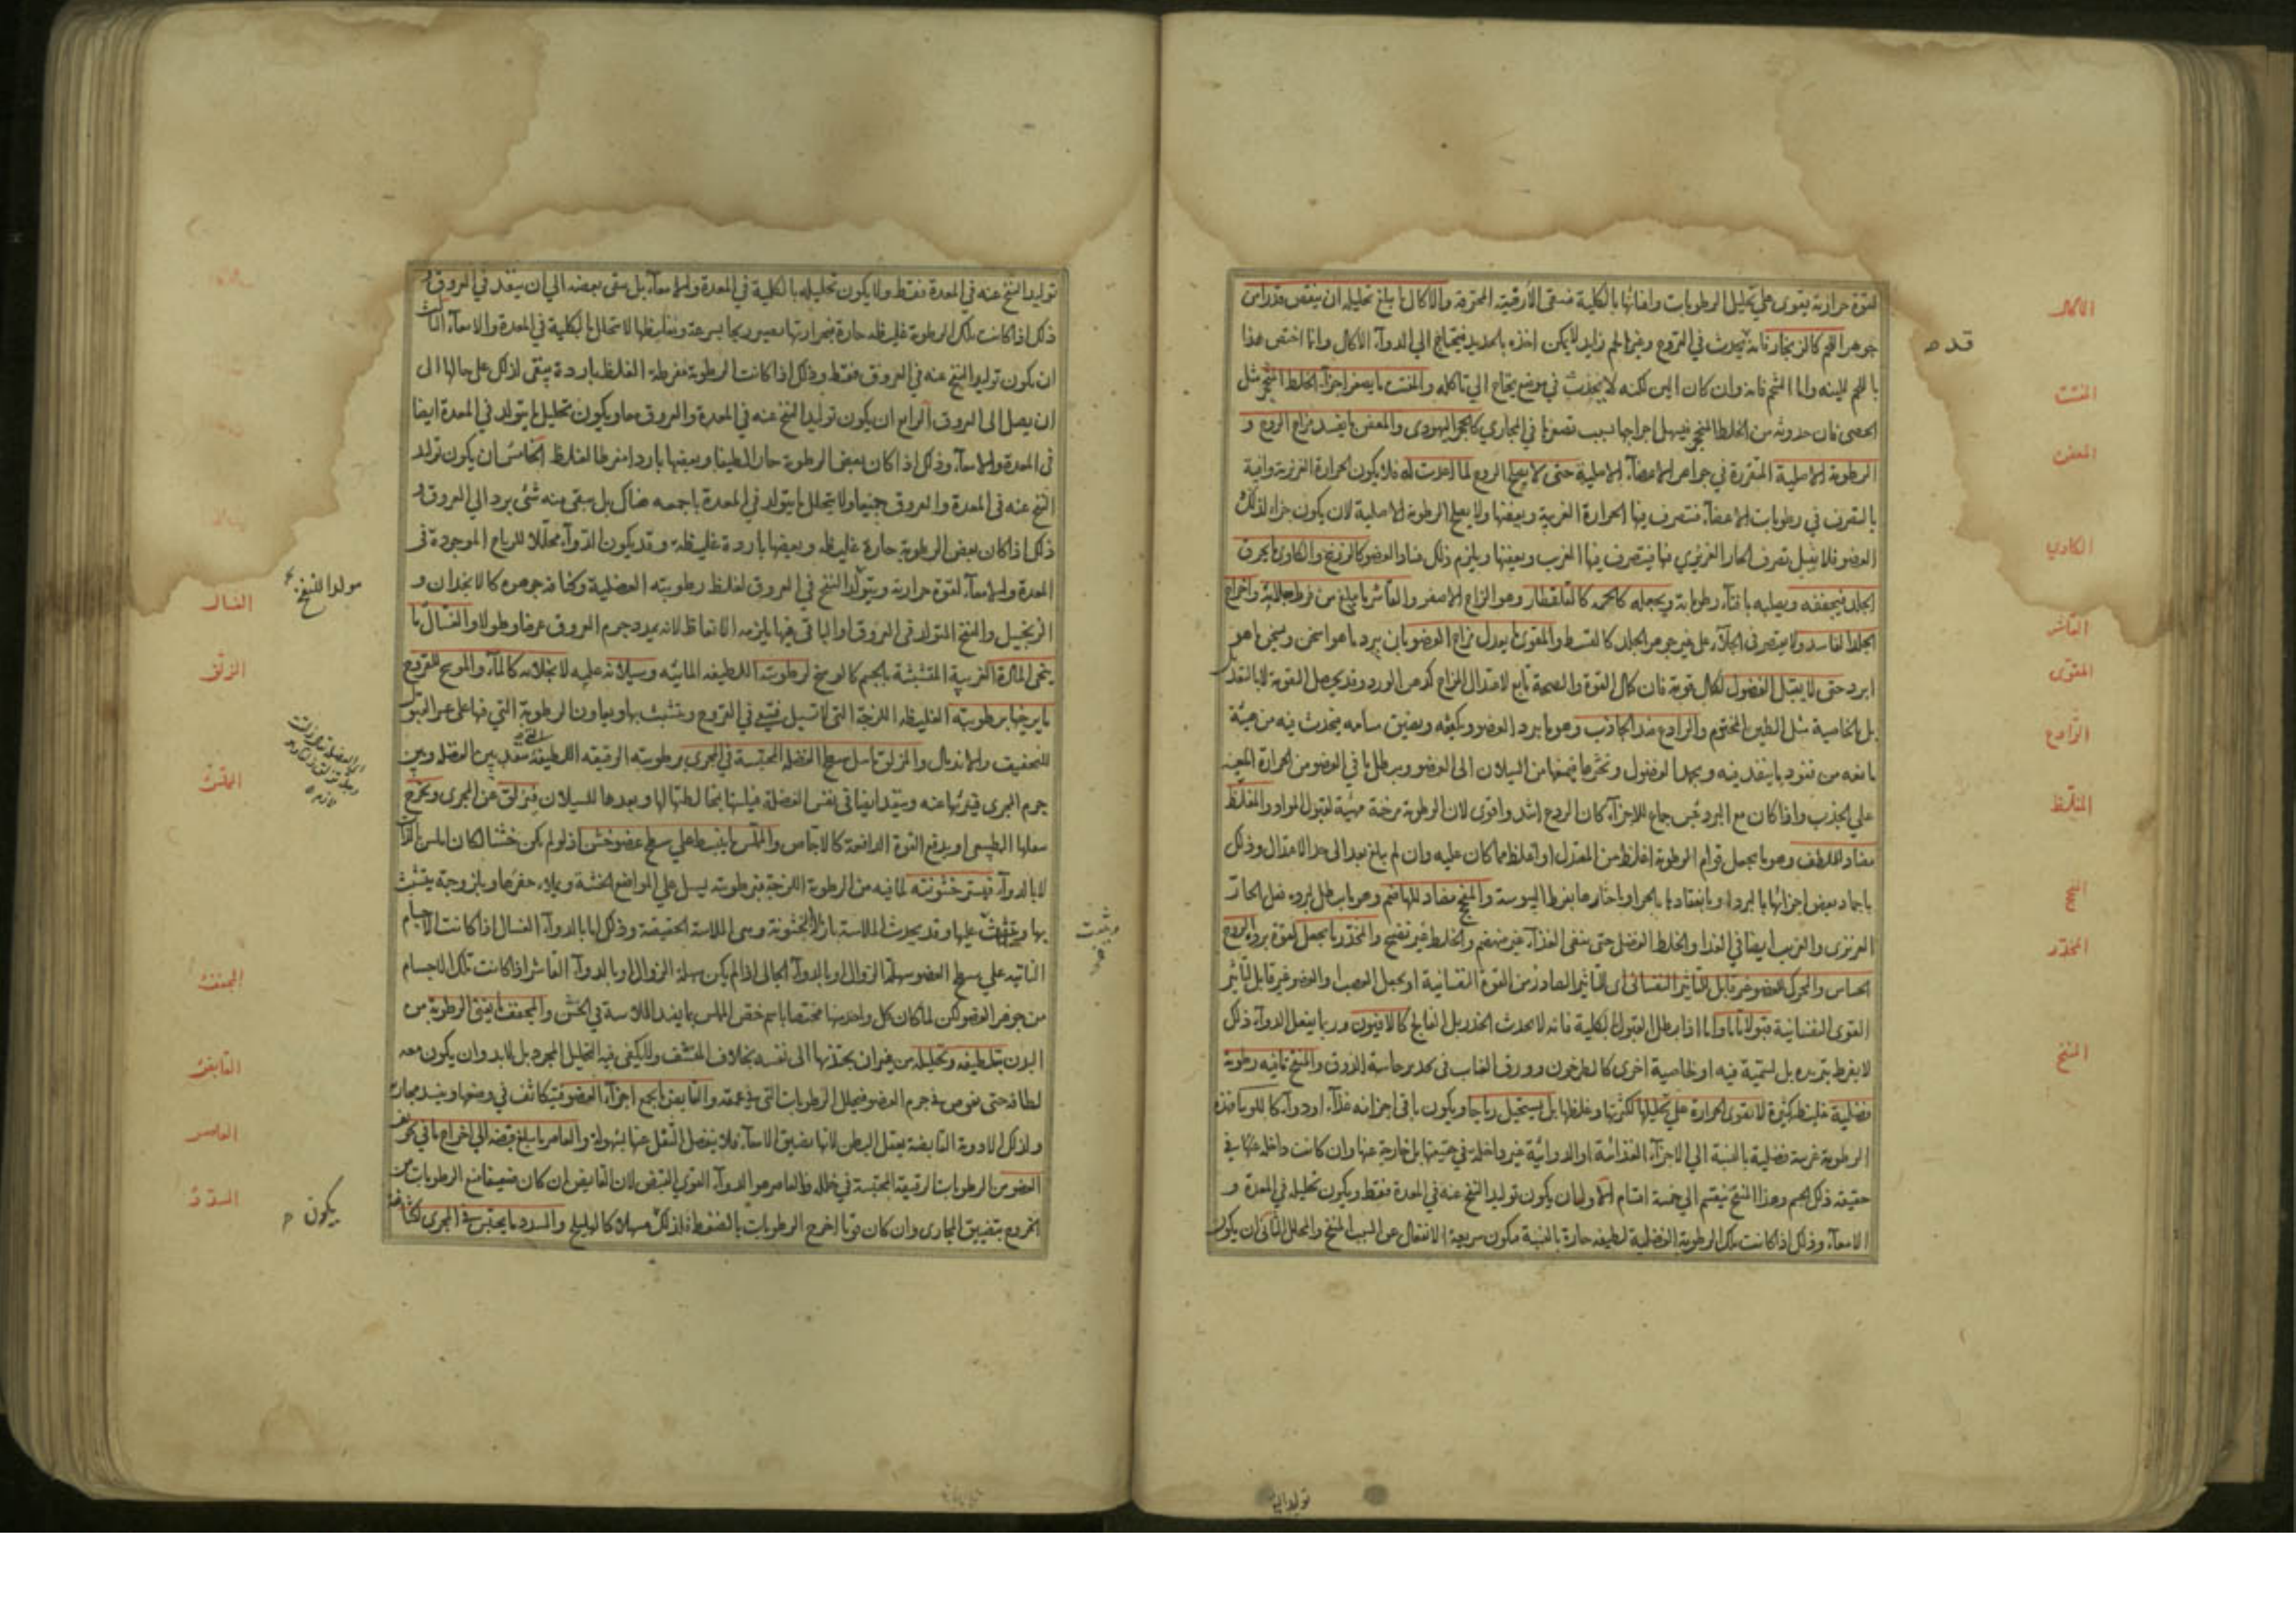 لقوة حرارته يقوى على تحليل الرطوبات وافنائها بالكلية فتبقى الارضية المحترقة والاكال ما يبلغ تحليله ان ينقص قدرا من
جوهر اللحم كالزنجار فانه يحدث في القروح وغيرها لحم زايد لا يمكن اخذه بالحديد فيحتاج الى الدواء الاكال وانما اختص هذا
باللحم للينه واما الشحم فانه وان كان الين لكنه لا يحدث في موضع يحتاج الى تاكله والمفتت ما يصغر اجزاء الخلط المتحجر مثل
الحصى فان حدوثه من الخلط المتحجر فيسهل اخراجها بسبب تصغرها في المجاري كالحجر اليهودى والمعفن ما يفسد مزاج الروح و
الرطوبة الاصلية المتقررة في جواهر الاعضاء الاصلية حتى لا يصلح الروح لما اعدت له فلا يكون الحرارة الغريزية وافية
بالتصرف في رطوبات الاعضاء فتتصرف فيها الحرارة الغريبة وبعفنها ولا يصلح الرطوبة الاصلية لان يكون جزاء لذلك
العضو فلا يقبل تصرف الحار الغريزي فيها فيتصرف فيها الغريب وبعفنها ويلزم ذلك فساد العضو كالزرنيخ والكاوى ما يحرق
الجلد فيجففه ويصلبه بافناء رطوباته ويجعله كالحممة كالقلقطار وهو الزاج الاصفر والقاشر ما يبلغ من فرط جلائه واخراج
الجلد الفاسد ولا يقتصر في الجلاء على غير جوهر الجلد كالقسط والمقوى ما يعدل مزاج العضو بان يبرد ما هو اسخن ويسخن ما هو
ابرد حتى لا يقبل الفضول لكمال قوته فان كمال القوة والصحة تابع لاعتدال المزاج كدهن الورد وقد يحصل القوة لا بالتعديل
بل بالخاصية مثل الطين المختوم والرادع ضد الجاذب وهو ما يبرد العضو ويكثفه ويضيق مسامه فيحدث فيه من هيئة
مانعه من نفوذ ما ينفذ فيه ويجمد الفضول ويخثرها فيمنعها من السيلان الى العضو ويبطل ما في العضو من الحرارة المعينه
على الجذب واذا كان مع البرد قبض جماع للاجزاء كان الردع اشد واقوى لان الرطوبة مرخية مهيئة لقبول المواد والمغلظ
مضاد للملطف وهو ما يجعل قوام الرطوبة اغلظ من المعتدل او اغلظ مما كان عليه وان لم يبلغ بعد الى حد الاعتدال وذلك
باجماد بعض اجزائها بالبرد او بانعقادها بالحر او باخثارها بفرط اليبوسة والمفجج مضاد للهاضم وهو ما يبطل لبرده فعل الحار
الغريزى والغريب ايضا في الغذاء والخلط الفضل حتى يبقى الغذاء غير منهضم والخلط غير نضيج والمخدر ما يجعل لقوة برده الروح
الحساس والمحرك للعضو غير قابل للتأثير النفسانى اى للتأثير الصادر من القوة النفسانية او يجعل العصب والعضو غير قابل لتأثير
القوى النفسانية قبولا تاما واما اذا بطل القبول بالكلية فانه لا يحدث الخدر بل الفالج كالافيون وربما يفعل الدواء ذلك
لا بفرط تبريده بل لسمية فيه او لخاصية اخرى كالطرخون وورق العناب في تخديره حاسة الذوق والمنفخ ما فيه رطوبة
فضلية غليظة كثيرة لا تقوى الحرارة على تحليلها لكثرتها وغلظها بل يستحيل رياحا ويكون باقى اجزائه غذاء او دواء كاللوبيا فهذه
الرطوبة غريبة فضلية بالنسبة الى الاجزاء الغذائية او الدوائية غير داخلة في حقيقتها بل خارجة عنها وان كانت داخلة في
حقيقة ذلك الجسم وهذا المنفخ ينقسم الى خمسة اقسام الاول ما يكون توليد النفخ عنه في المعدة فقط ويكون تحليله في المعدة و
الامعاء وذلك اذا كانت تلك الرطوبة الفضلية لطيفه حارة بالنسبة فيكون سريعة الانفعال عن السبب المنفخ والمحلل الثانى ان يكون
قد ه
الاكال
المفتت
المعفن
الكاوي
القاشر
المقوى
الرادع
المغلظ
المفجج
المخدر
المنفخ
توليد النفخ
توليد النفخ عنه في المعدة فقط ولا يكون تحليله بالكلية في المعدة والامعاء بل يبقى بعضه الى ان ينفذ في العروق و
ذلك اذا كانت تلك الرطوبة غليظه حارة فبحرارتها يصير ريحا بسرعة وبغلظها لا يتحلل بالكلية في المعدة والامعاء الثالث
ان يكون توليد النفخ عنه في العروق فقط وذلك اذا كانت الرطوبة مفرطة الغلظ باردة يبقى لذلك على حالها الى
ان يصل الى العروق الرابع ان يكون توليد النفخ عنه في المعدة والعروق معا ويكون تحليل ما يتولد في المعدة ايضا
فى المعدة والامعاء وذلك اذا كان بعض الرطوبة حارا لطيفا وبعضها باردا مفرط الغلظ الخامس ان يكون تولد
النفخ عنه في المعدة والعروق جميعا ولا يتحلل ما يتولد في المعدة باجمعه هناك بل يبقى منه شئ يرد الى العروق و
ذلك اذا كان بعض الرطوبة حارة غليظه وبعضها باردة غليظة وقد يكون الدواء محللا للرياح الموجودة في
المعدة والامعاء لقوة حرارته ويتولد النفخ في العروق لغلظ رطوبته الفضلية وكثافة جوهره كالانجدان و
الزنجبيل والمنفخ المتولد في العروق او الباقى فيها يلزمه الانعاظ لانه يمدد جرم العروق عرضا وطولا والغسال ما
ينحى المادة الغريبة المتشبثة بالجسم كالوسخ لرطوبته اللطيفه المائيه وسيلانه عليه لا بجلائه كالماء والموسخ للقروح
ما يرخيها برطوبته الغليظه اللزجة التى لا تسيل فيبقى في القروح ويتشبث بها ويعاون الرطوبة التي فيها على عسر القبول
للتجفيف والاندمال والمزلق ما يبل سطح الفضلة المحتبسة في المجرى برطوبته الرقيقه اللطيفة فينفذ بين الفضلة وبين
جرم المجرى فيبرئها عنه وينفذ ايضا في نفس الفضلة فيلينها بمخالطتها لها ويعدها للسيلان فيزلق عن المجرى ويخرج
بثقلها الطبيعى او بدفع القوة الدافعة كالاجاص والمملس ما ينبسط على سطح عضو خشن اذ لو لم يكن خشنا لكان املس بالذات
لا بالدواء فيستر خشونته لما فيه من الرطوبة اللزجة فبرطوبته يسيل على المواضع الخشنة ويملاء حفرها وبلزوجته يتشبث
بها ويثبت عليها وقد يحدث الملاسة بازالة الخشونة وهى الملاسة الحقيقة وذلك اما بالدواء الغسال اذا كانت الاجسام
الناتيه على سطح العضو سهلة الزوال او بالدواء الجالى اذا لم يكن سهلة الزوال او بالدواء القاشر اذا كانت تلك الاجسام
من جوهر العضو لكن لما كان كل واحد منها مختصا باسم خص المملس بما يفيد الملاسة في الخشن والمجفف ما يفنى الرطوبة من
البدن بتلطيفه وتحليله من غير ان يجذبها الى نفسه بخلاف المنشف ولا يكفى فيه التحليل المجرد بل لابد وان يكون معه
لطافة حتى يغوص في جرم العضو فيحلل الرطوبات التي في عمقه والقابض ما يجمع اجزاء العضو فيتكاثف في وضعها وينسد مجاريه
ولذلك الادوية القابضة يعقل البطن لانها يضيق الامعاء فلا ينفصل الثقل عنها بسهولة والعاصر ما يبلغ قبضه الى اخراج ما في تجويف
العضو من الرطوبات الرقيقة المحتبسة في خلله فالعاصر هو الدواء القوى القبض لان القابض ان كان ضعيفا منع الرطوبات من
الخروج بتضييق المجارى وان كان قويا اخرج الرطوبات بالضغط فلذلك مسهلا كالهليلج والمسدد ما يحتبس في المجرى لكثافته
مولدا للنفخ
يكون
ويثبت
الغسال
المزلق
المملس
المجفف
القابض
العاصر
المسدد